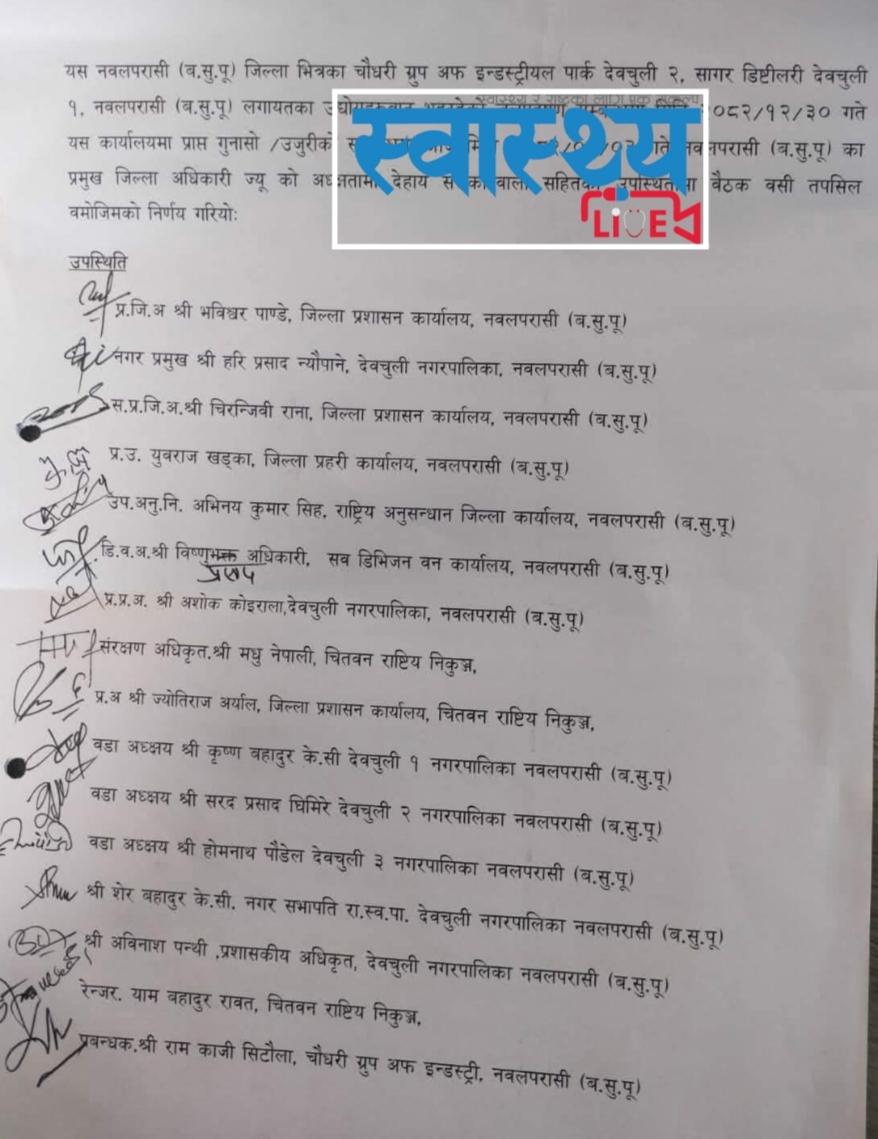 यस नवलपरासी (ब.सु.पू) जिल्ला भित्रका चौधरी ग्रुप अफ इन्डस्ट्रीयल पार्क देवचुली २, सागर डिष्टीलरी देवचुली
१, नवलपरासी (ब.सु.पू) लगायतका २०८२/१२/३० गते
यस कार्यालयमा प्राप्त गुनासो /उजुरीको गते नवलपरासी (ब.सु.पू) का
प्रमुख जिल्ला अधिकारी ज्यू को अध्यक्षतामा देहाय सहितको उपस्थितिमा बैठक वसी तपसिल
वमोजिमको निर्णय गरियोः
स्वास्थ्य
LIVE
उपस्थिति
प्र.जि.अ श्री भविश्वर पाण्डे, जिल्ला प्रशासन कार्यालय, नवलपरासी (ब.सु.पू)
नगर प्रमुख श्री हरि प्रसाद न्यौपाने, देवचुली नगरपालिका, नवलपरासी (ब.सु.पू)
स.प्र.जि.अ.श्री चिरन्जिवी राना, जिल्ला प्रशासन कार्यालय, नवलपरासी (ब.सु.पू)
प्र.उ. युवराज खड्का, जिल्ला प्रहरी कार्यालय, नवलपरासी (ब.सु.पू)
उप.अनु.नि. अभिनय कुमार सिह, राष्ट्रिय अनुसन्धान जिल्ला कार्यालय, नवलपरासी (ब.सु.पू)
डि.व.अ.श्री विष्णुभक्त अधिकारी, सव डिभिजन वन कार्यालय, नवलपरासी (ब.सु.पू)
प्र.प्र.अ. श्री अशोक कोइराला,देवचुली नगरपालिका, नवलपरासी (ब.सु.पू)
संरक्षण अधिकृत.श्री मधु नेपाली, चितवन राष्टिय निकुञ्ज,
प्र.अ श्री ज्योतिराज अर्याल, जिल्ला प्रशासन कार्यालय, चितवन राष्टिय निकुञ्ज,
वडा अध्क्षय श्री कृष्ण बहादुर के.सी देवचुली १ नगरपालिका नवलपरासी (ब.सु.पू)
वडा अध्क्षय श्री सरद प्रसाद घिमिरे देवचुली २ नगरपालिका नवलपरासी (ब.सु.पू)
वडा अध्क्षय श्री होमनाथ पौडेल देवचुली ३ नगरपालिका नवलपरासी (ब.सु.पू)
श्री शेर बहादुर के.सी. नगर सभापति रा.स्व.पा. देवचुली नगरपालिका नवलपरासी (ब.सु.पू)
श्री अविनाश पन्थी ,प्रशासकीय अधिकृत, देवचुली नगरपालिका नवलपरासी (ब.सु.पू)
रेन्जर. याम बहादुर रावत, चितवन राष्टिय निकुञ्ज,
प्रबन्धक.श्री राम काजी सिटौला, चौधरी ग्रुप अफ इन्डस्ट्री, नवलपरासी (ब.सु.पू)